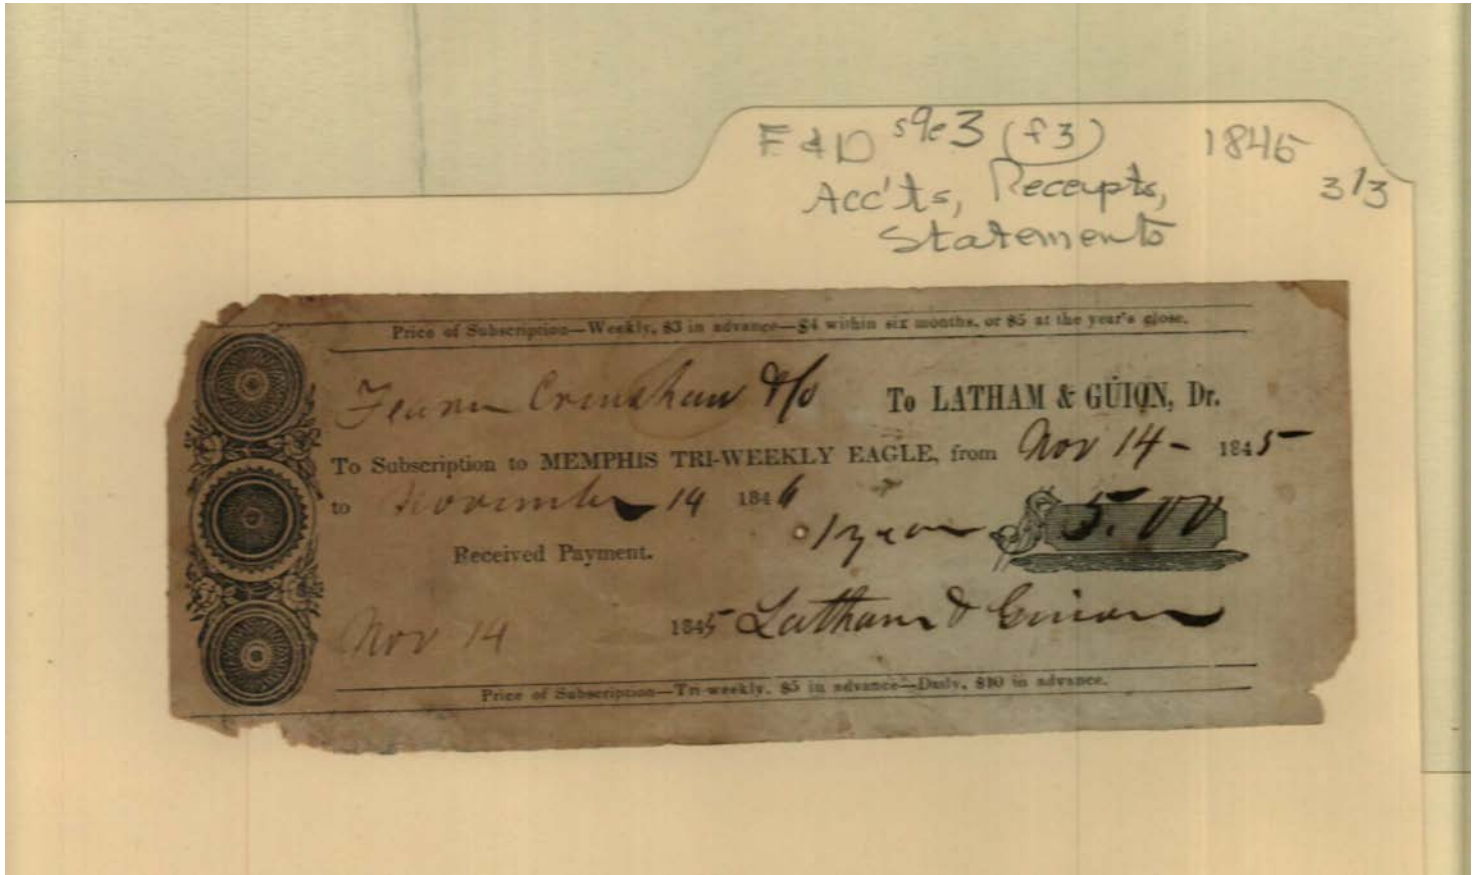 F & D s9e3 (f3) 1845
3/3
Acc'ts, Receipts,
Statements
Price of Subscription—Weekly, $3 in advance—$4 within six months, or $5 at the year's close.
Fearn Crenshaw & Co To LATHAM & GUION, Dr.
To Subscription to MEMPHIS TRI-WEEKLY EAGLE, from Nov 14 - 1845
to November 14 1846
1 year 5.00
Received Payment.
Nov 14 1845 Latham & Guion
Price of Subscription—Tri-weekly, $5 in advance—Daily, $10 in advance.